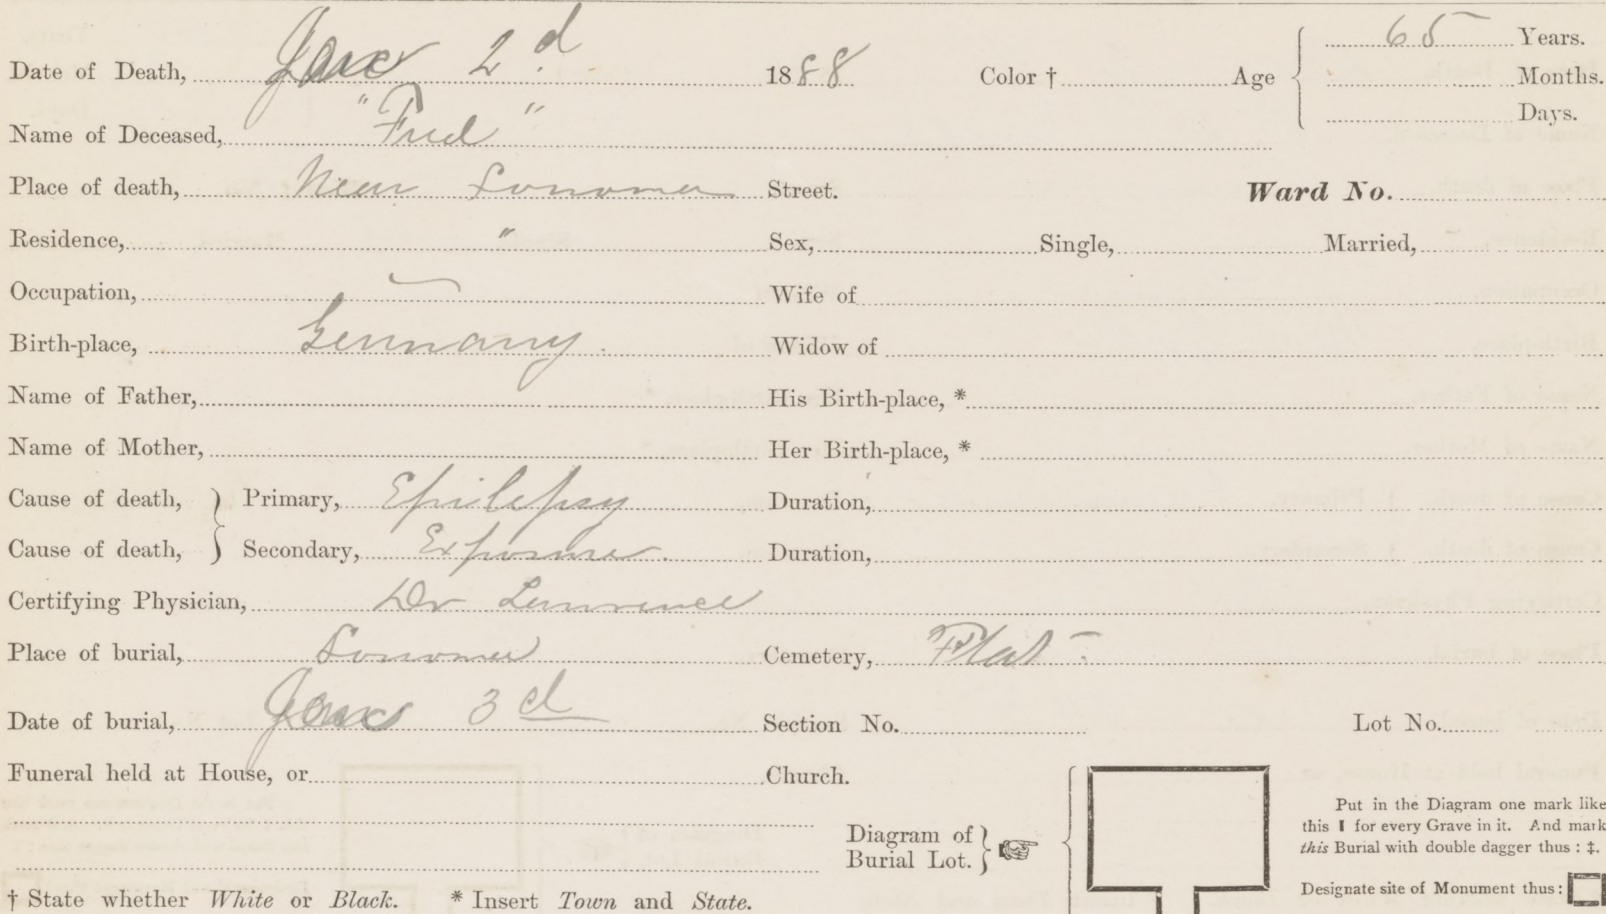 Date of Death, Jan 2d 1888 Color † Age 65 Years.
Months.
Days.
Name of Deceased, "Fred"
Place of death, Near Sonoma Street. Ward No.
Residence, " Sex, Single, Married,
Occupation, Wife of
Birth-place, Germany. Widow of
Name of Father, His Birth-place, *
Name of Mother, Her Birth-place, *
Cause of death, } Primary, Epilepsy Duration,
Cause of death, } Secondary, Exposure. Duration,
Certifying Physician, Dr Lawrence
Place of burial, Sonoma Cemetery, Plat
Date of burial, Jan 3d Section No. Lot No.
Funeral held at House, or Church.
Diagram of
Burial Lot. }
Put in the Diagram one mark like
this ❙ for every Grave in it. And mark
this Burial with double dagger thus : ‡.
Designate site of Monument thus :
† State whether White or Black. * Insert Town and State.